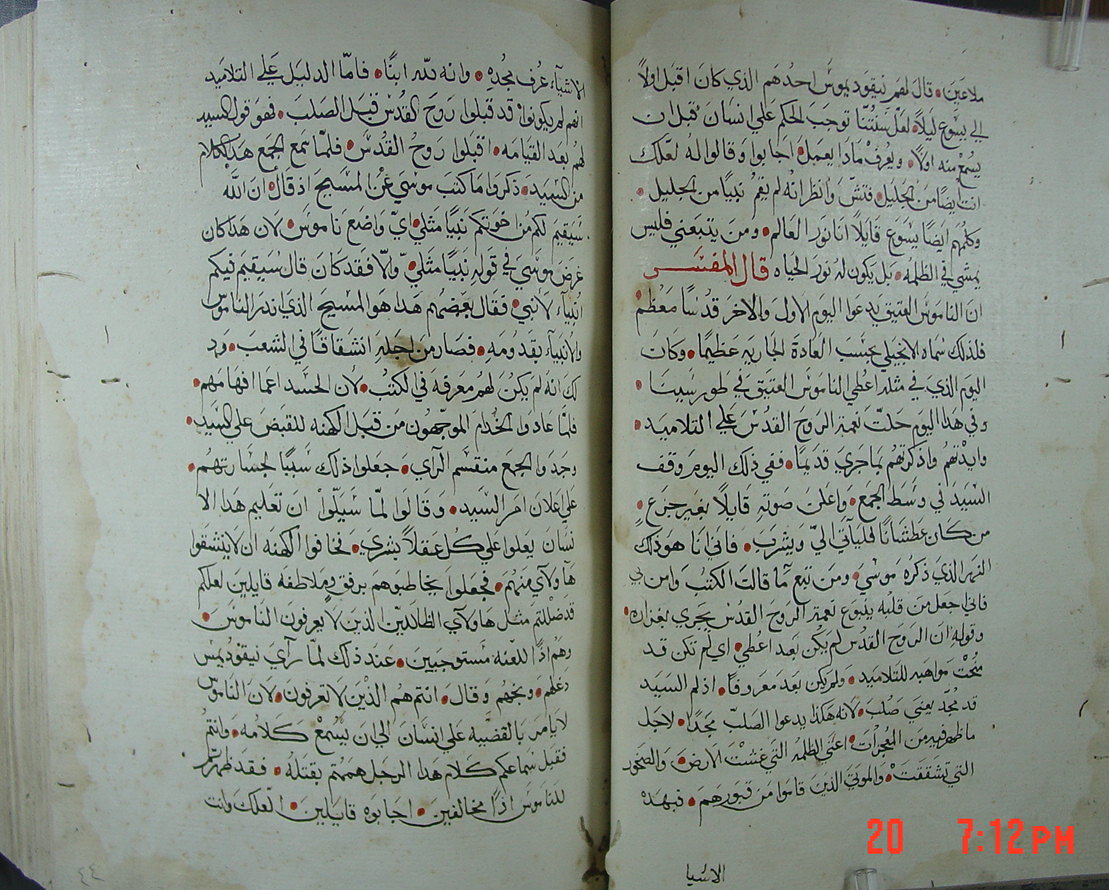 ملاعين • قال لهم نيقوديموس احدهم الذي كان اقبل اولًا
الي يسوع ليلًا • لعل سنتنا توجب الحكم علي انسان قبل ان
يسمع منه اولًا • ويعرف ماذا يعمل • اجابوا وقالوا له لعلك
انت ايضًا من الجليل • فتش وانظر انه لم يقم نبيًا من الجليل •
وكلمهم ايضًا يسوع قايلًا انا نور العالم • ومن يتبعني فليس
يمشي في الظلمه • بل يكون له نور الحياه قال المفسر
ان الناموس العتيق يدعوا اليوم الاول والاخر قدسًا معظم •
فلذلك سماه الانجيلي بحسب العادة الجاريه عظيمًا • وكان
اليوم الذي في مثله اعطي الناموس العتيق في طور سينا •
وفي هذا اليوم حلت نعمة الروح القدس علي التلاميد •
وايدتهم واذكرتهم بما جري قديمًا • ففي ذلك اليوم وقف
السيد في وسط الجمع • واعلن صوته قايلًا بغير جزع •
من كان عطشانًا فليأتي اليّ ويشرب • فاني انا هو ذلك
النهر الذي ذكره موسي • ومن تبع ما قالت الكتب وامن بي
فاني اجعل من قلبه ينبوع نعمة الروح القدس يجري بغزاره •
وقوله ان الروح القدس لم يكن بعد اعطي • اي لم تكن قد
منحت مواهبه للتلاميد • ولم يكن بعد معروفًا • اذ لم السيد
قد مُجّد يعني صلب • لانه هكذا يدعوا الصلب مجدًا • لاجل
ما ظهر فيه من المعجزات • اعني الظلمه التي غشت الارض • والصخور
التي تشققت • والموتي الذين قاموا من قبورهم • فبهذه
الاشيا
الاشيآء عُرف مجده • وانه لله ابنًا • فامّا الدليل علي التلاميد
انهم لم يكونوا قد قبلوا روح القدس قبل الصلب • فهو قول السيد
لهم بعد القيامه • اقبلوا روح القدس • فلمّا سمع الجمع هذا الكلام
من السيد • ذكروا ما كتب موسي عن المسيح اذ قال • ان الله
سيقيم لكم من اخوتكم نبيًا مثلي • اي واضع ناموس • لان هذا كان
غرض موسي في قوله نبيًا مثلي • والّا فقد كان قال سيقيم فيكم
انبيآء لا نبي • فقال بعضهم هذا هو المسيح الذي انذر الناموس
والانبيآء بقدومه • فصار من اجله انشقاقًا في الشعب • وذ
لك انه لم يكن لهم معرفه في الكتب • لأن الحسد اعما افهامهم •
فلمّا عادوا الخدام الموجهون من قبل الكهنه للقبض علي السيد •
وجدوا الجمع منقسم الرآي • جعلوا ذلك سببًا لجسارتهم •
علي اعلان امر السيد • وقالوا لمّا سُيلوا ان تعليم هذا الا
نسان يعلوا علي كل عقلًا بشري • فخافوا الكهنه ان لا ينشقوا
هاولآي منهم • فجعلوا يخاطبوهم برفق وملاطفه قايلين لعلكم
قد ضللتم مثل هاولآي الظالين الذين لا يعرفون الناموس •
وهم اذًا للعنه مستوجبين • عند ذلك لمّا رآي نيقوديمس
دغلهم • وبخهم وقال • انتم هم الذين لا تعرفون • لان الناموس
لا يامر بالقضيه علي انسان الي ان يسمع كلامه • وانتم
فقبل سماعكم كلام هذا الرجل هممتم بقتله • فقد ظهرتم
للناموس اذًا مخالفين • اجابوه قايلين • العلك وانت
٤٤
20 7:12 PM